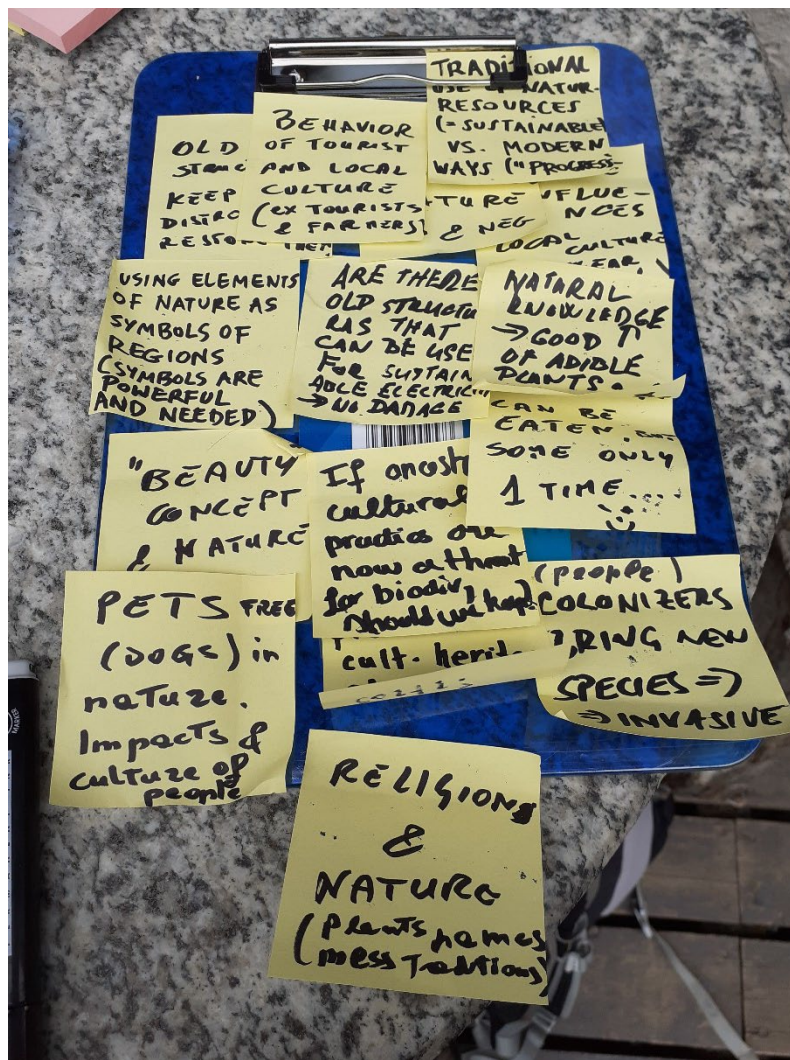 TRADITIONAL
USE OF NATUR
RESOURCES
(=SUSTAINABLE
VS. MODERN
WAYS ("PROGRESS
BEHAVIOR
OF TOURIST
AND LOCAL
CULTURE
(EX TOURISTS
& FARMERS)
OLD
STRUC
KEEP
DISTRO
RESTORE THEM
TURE
& NEG
NFLUE-
NCES
LOCAL CULTURE
USING ELEMENTS
OF NATURE AS
SYMBOLS OF
REGIONS
(SYMBOLS ARE
POWERFUL
AND NEEDED)
ARE THERE
OLD STRUCTU
RAS THAT
CAN BE USE
FOR SUSTAIN
ABLE ELECTRICI
→ NO DAMAGE
NATARAL
KNOWLEDGE
→ GOOD ↑
OF ADIBLE
PLANTS.
CAN BE
EATEN, BUT
SOME ONLY
1 TIME....
"BEAUTY
CONCEPT
& NATURE
If ancest
cultural
practices are
now a threat
for biodiv,
should we keep
cult. herit
(people)
COLONIZERS
BRING NEW
SPECIES =>
=> INVASIVE
PETS FREE
(DOGS) in
nature.
Impacts &
culture of
people
RELIGIONS
&
NATURE
(Plants names
mess Traditions)
MARKER